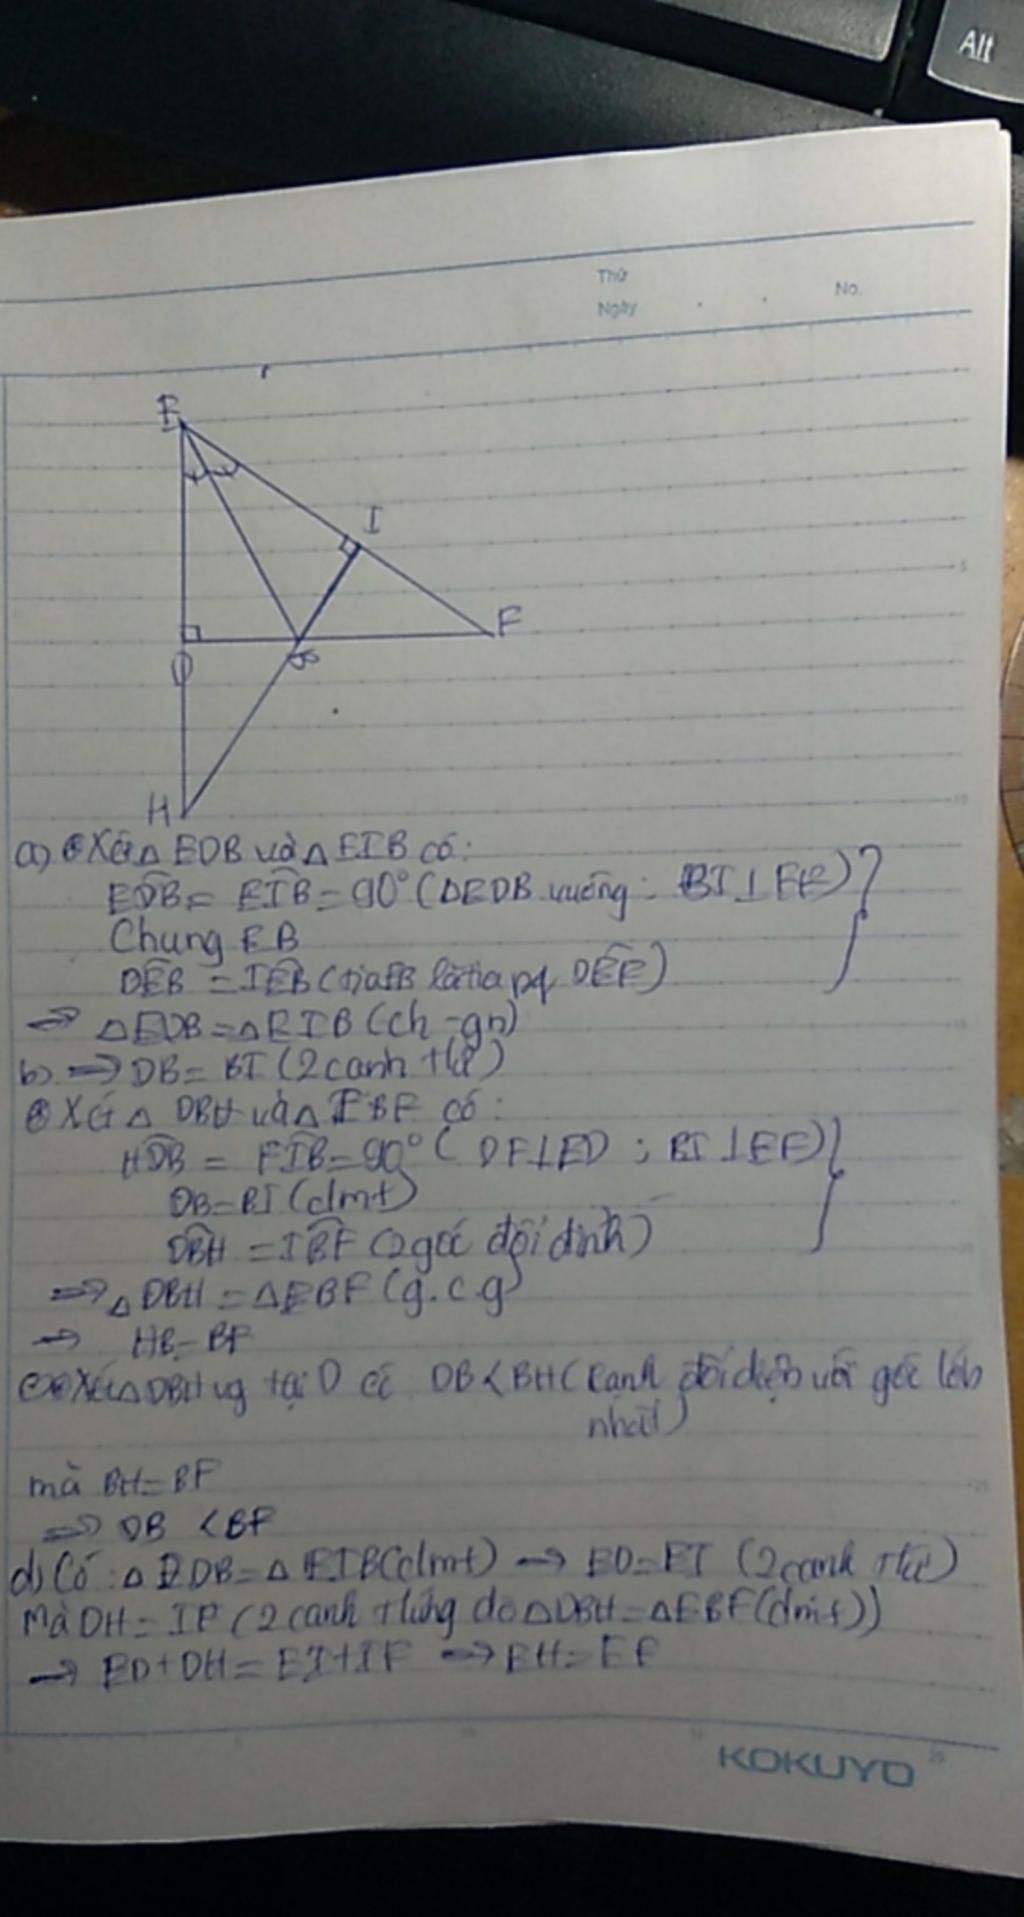 Alt
Thứ
Ngày
No.
E
I
F
D
B
H
a) Xét △ EDB và △ EIB có:
EDB = EIB = 90° (△EDB vuông; BI⊥EF)
Chung EB
DEB = IEB (tia EB là tia pg DEF)
=> △EDB = △EIB (ch-gn)
b) => DB = BI (2 cạnh tứ)
Xét △ DBH và △ IBF có:
HDB = FIB = 90° ( DF⊥ED ; BI⊥EF)
DB = BI (cmt)
DBH = IBF (2 góc đối đỉnh)
=> △ DBH = △EBF (g.c.g)
=> HB = BF
c) Xét △DBH vg tại D có DB < BH (cạnh đối diện với góc lớn
nhất)
mà BH = BF
=> DB < BF
d) Có : △ EDB = △ EIB (cmt) => ED = EI (2 cạnh tứ)
Mà DH = IF (2 cạnh tứng do △DBH = △EBF (cmt))
=> ED + DH = EI + IF => EH = EF
KOKUYO